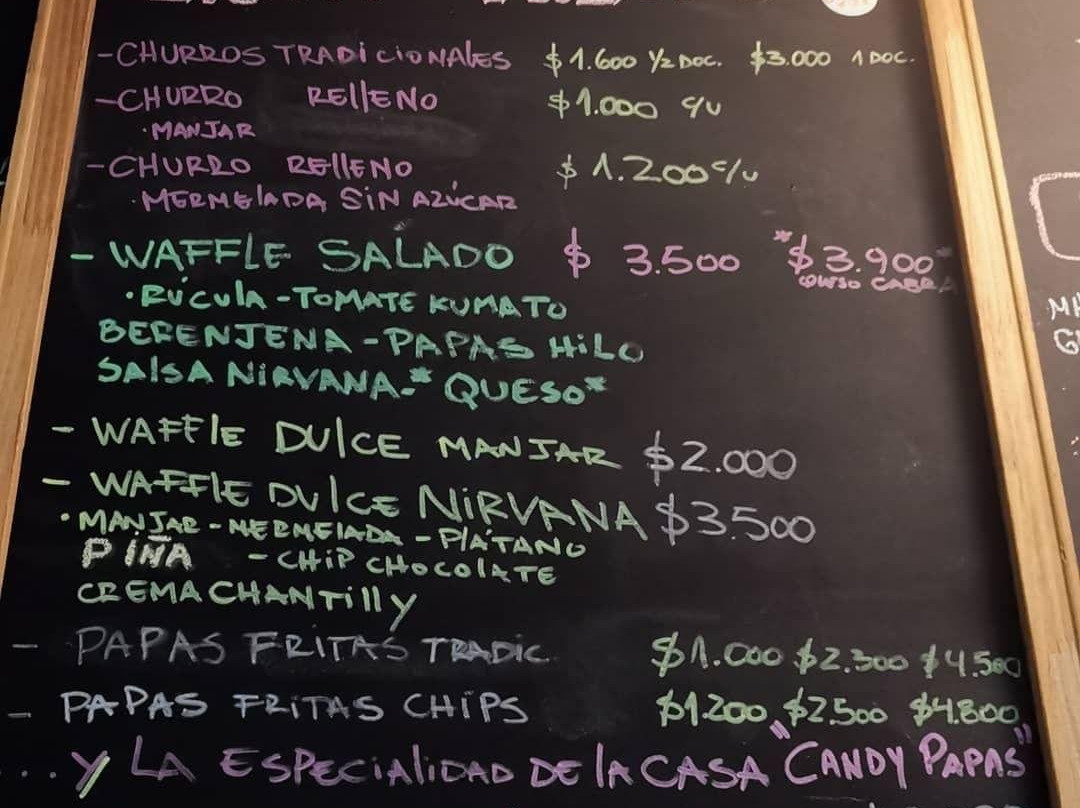 -CHURROS TRADICIONALES $1.600 1/2 DOC. $3.000 1 DOC.
-CHURRO RELLENO $1.000 c/u
·MANJAR
-CHURRO RELLENO $1.200 c/u
·MERMELADA SIN AZÚCAR
- WAFFLE SALADO $ 3.500 *$3.900*
CABRA
·RÚCULA-TOMATE KUMATO
BERENJENA-PAPAS HILO
SALSA NIRVANA-*QUESO*
- WAFFLE DULCE MANJAR $2.000
- WAFFLE DULCE NIRVANA $3.500
·MANJAR-MERMELADA-PLÁTANO
PIÑA - CHIP CHOCOLATE
CREMA CHANTILLY
- PAPAS FRITAS TRADIC. $1.000 $2.300 $4.500
- PAPAS FRITAS CHIPS $1200 $2.500 $4.800
...Y LA ESPECIALIDAD DE LA CASA "CANDY PAPAS"